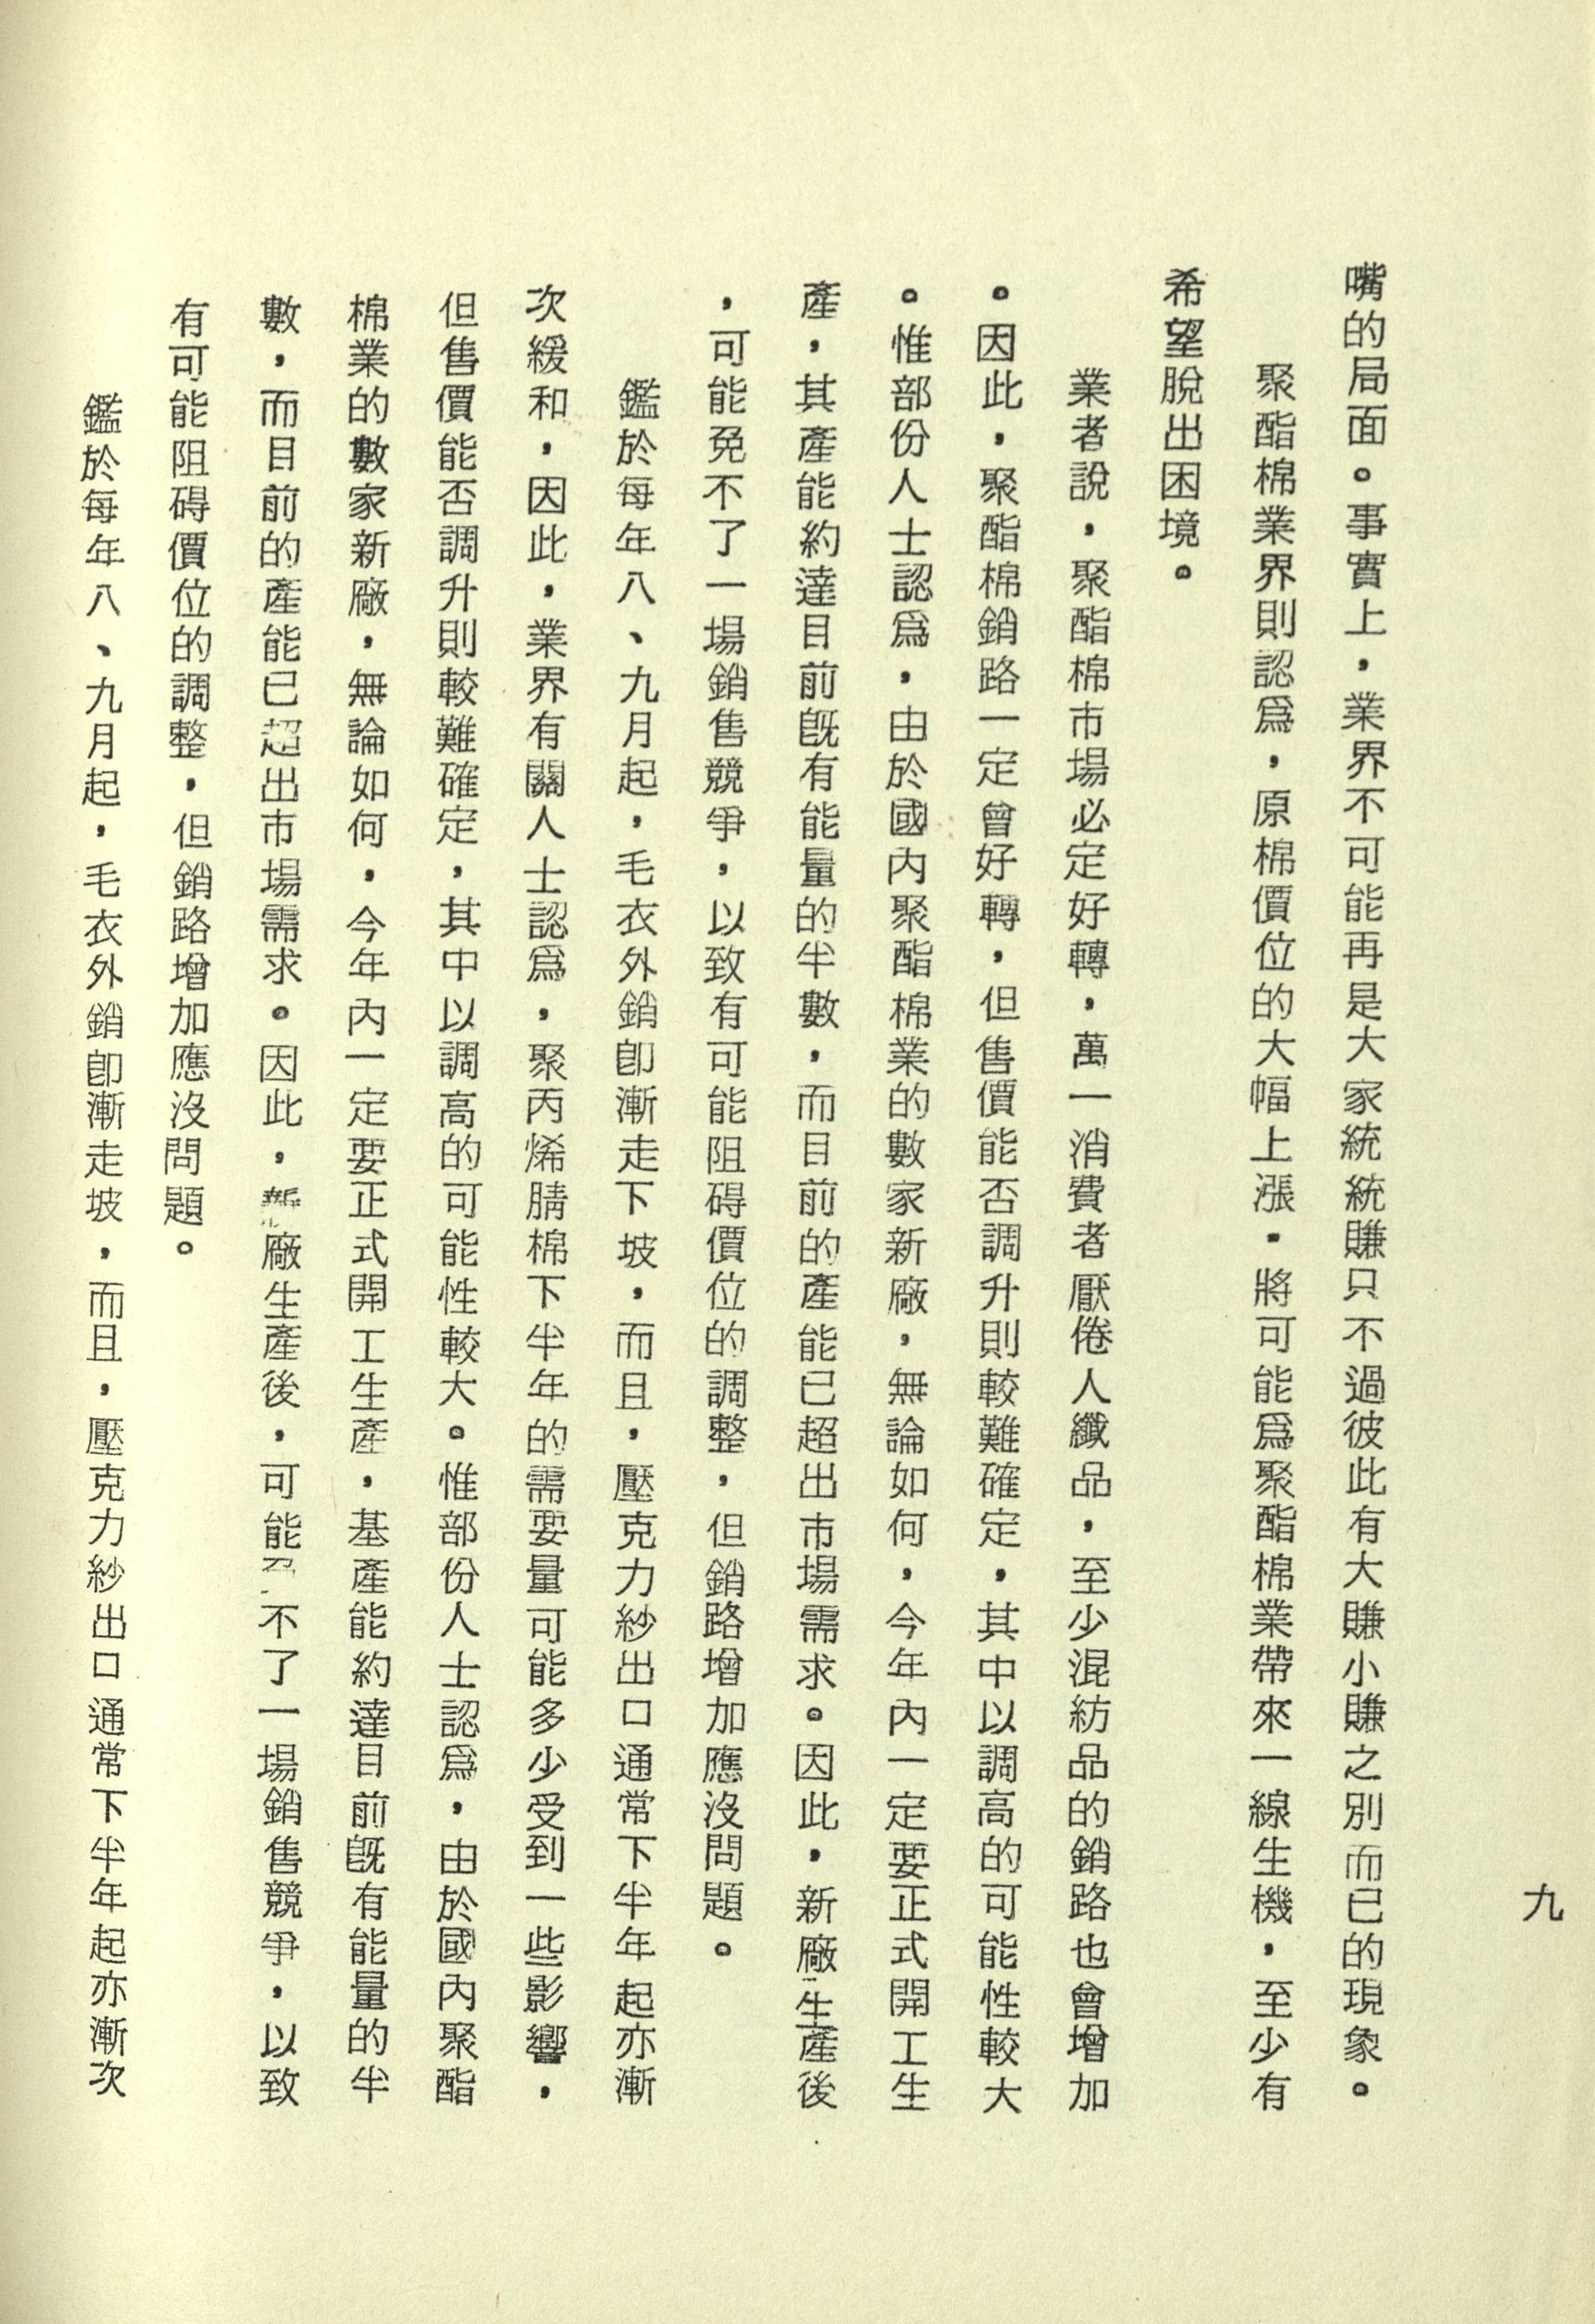 九
嘴的局面。事實上，業界不可能再是大家統統賺只不過彼此有大賺小賺之別而已的現象。
聚酯棉業界則認爲，原棉價位的大幅上漲．將可能爲聚酯棉業帶來一線生機，至少有
希望脫出困境。
業者說，聚酯棉市場必定好轉，萬一消費者厭倦人纖品，至少混紡品的銷路也會增加
。因此，聚酯棉銷路一定會好轉，但售價能否調升則較難確定，其中以調高的可能性較大
。惟部份人士認爲，由於國內聚酯棉業的數家新廠，無論如何，今年內一定要正式開工生
產，其產能約達目前旣有能量的半數，而目前的產能已超出市場需求。因此，新廠生產後
，可能免不了一場銷售競爭，以致有可能阻碍價位的調整，但銷路增加應沒問題。
鑑於每年八、九月起，毛衣外銷卽漸走下坡，而且，壓克力紗出口通常下半年起亦漸
次緩和，因此，業界有關人士認爲，聚丙烯腈棉下半年的需要量可能多少受到一些影響，
但售價能否調升則較難確定，其中以調高的可能性較大。惟部份人士認爲，由於國內聚酯
棉業的數家新廠，無論如何，今年內一定要正式開工生產，基產能約達目前旣有能量的半
數，而目前的產能已超出市場需求。因此，新廠生產後，可能不了一場銷售競爭，以致
有可能阻碍價位的調整，但銷路增加應沒問題。
鑑於每年八、九月起，毛衣外銷卽漸走坡，而且，壓克力紗出口通常下半年起亦漸次